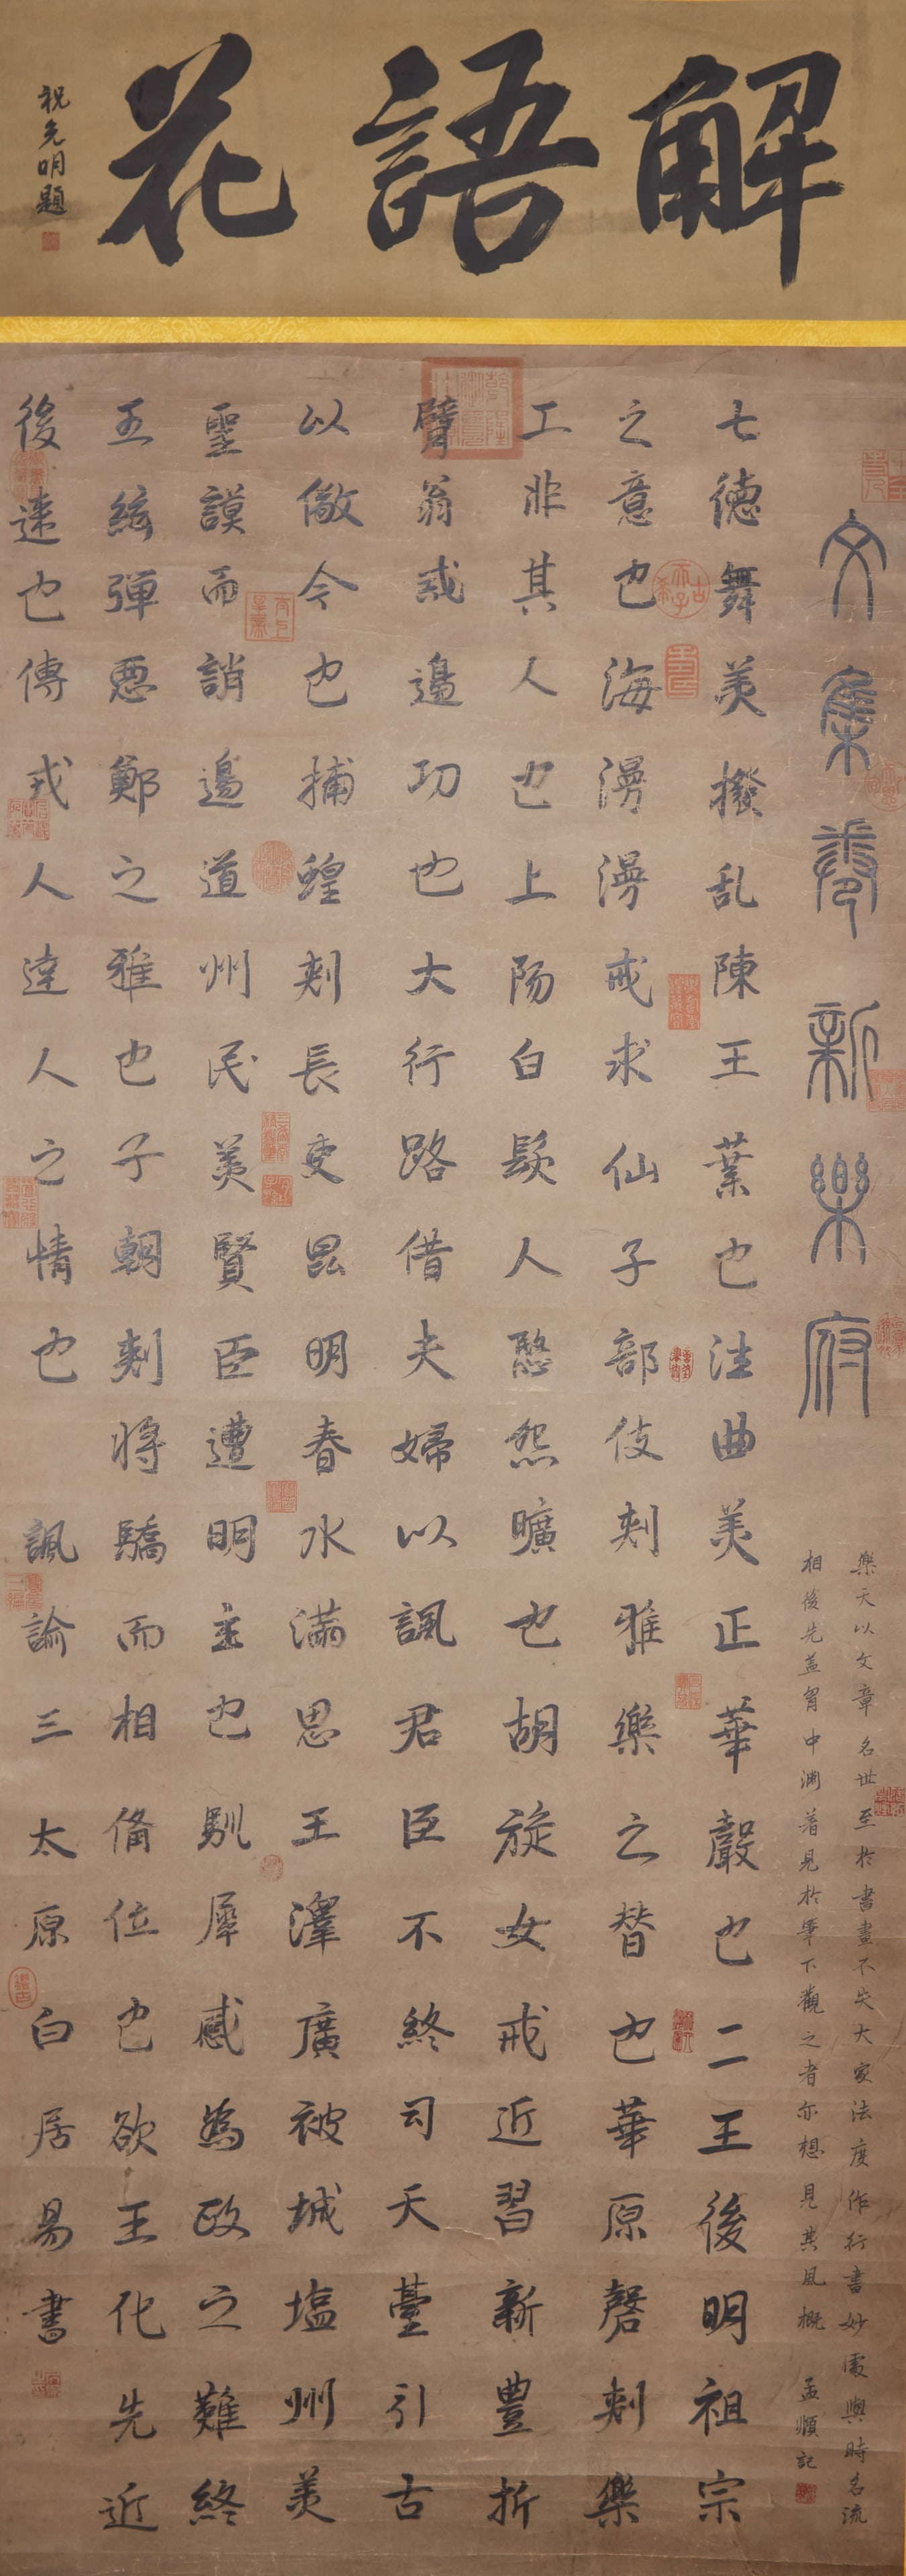 解語花
祝允明題
文集卷 新樂府
樂天以文章名世至於書畫不失大家法度作行書妙處與時名流
相後先蓋胷中淵著見於筆下觀之者亦想見其風概 孟頫記
七德舞美撥乱陳王業也法曲美正華聲也二王後明祖宗
之意也海漫漫戒求仙子部伎刾雅樂之替也華原磬刾樂
工非其人也上陽白髮人愍怨曠也胡旋女戒近習新豐折
臂翁戒邊功也大行路借夫婦以諷君臣不終司天臺引古
以儆今也捕蝗刾長吏昆明春水滿思王澤廣被城塩州美
聖謨而誚邊道州民美賢臣遭明主也馴犀感為政之難終
五絃彈惡鄭之雅也子朝刾將驕而相備位也欲王化先近
後遠也傳戎人達人之情也 諷諭三 太原白居易書